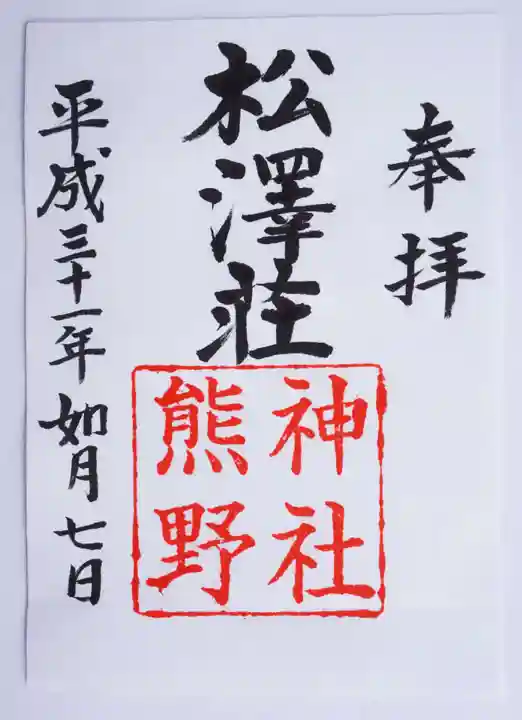 奉拝
松澤荘
神社
熊野
平成三十一年如月七日